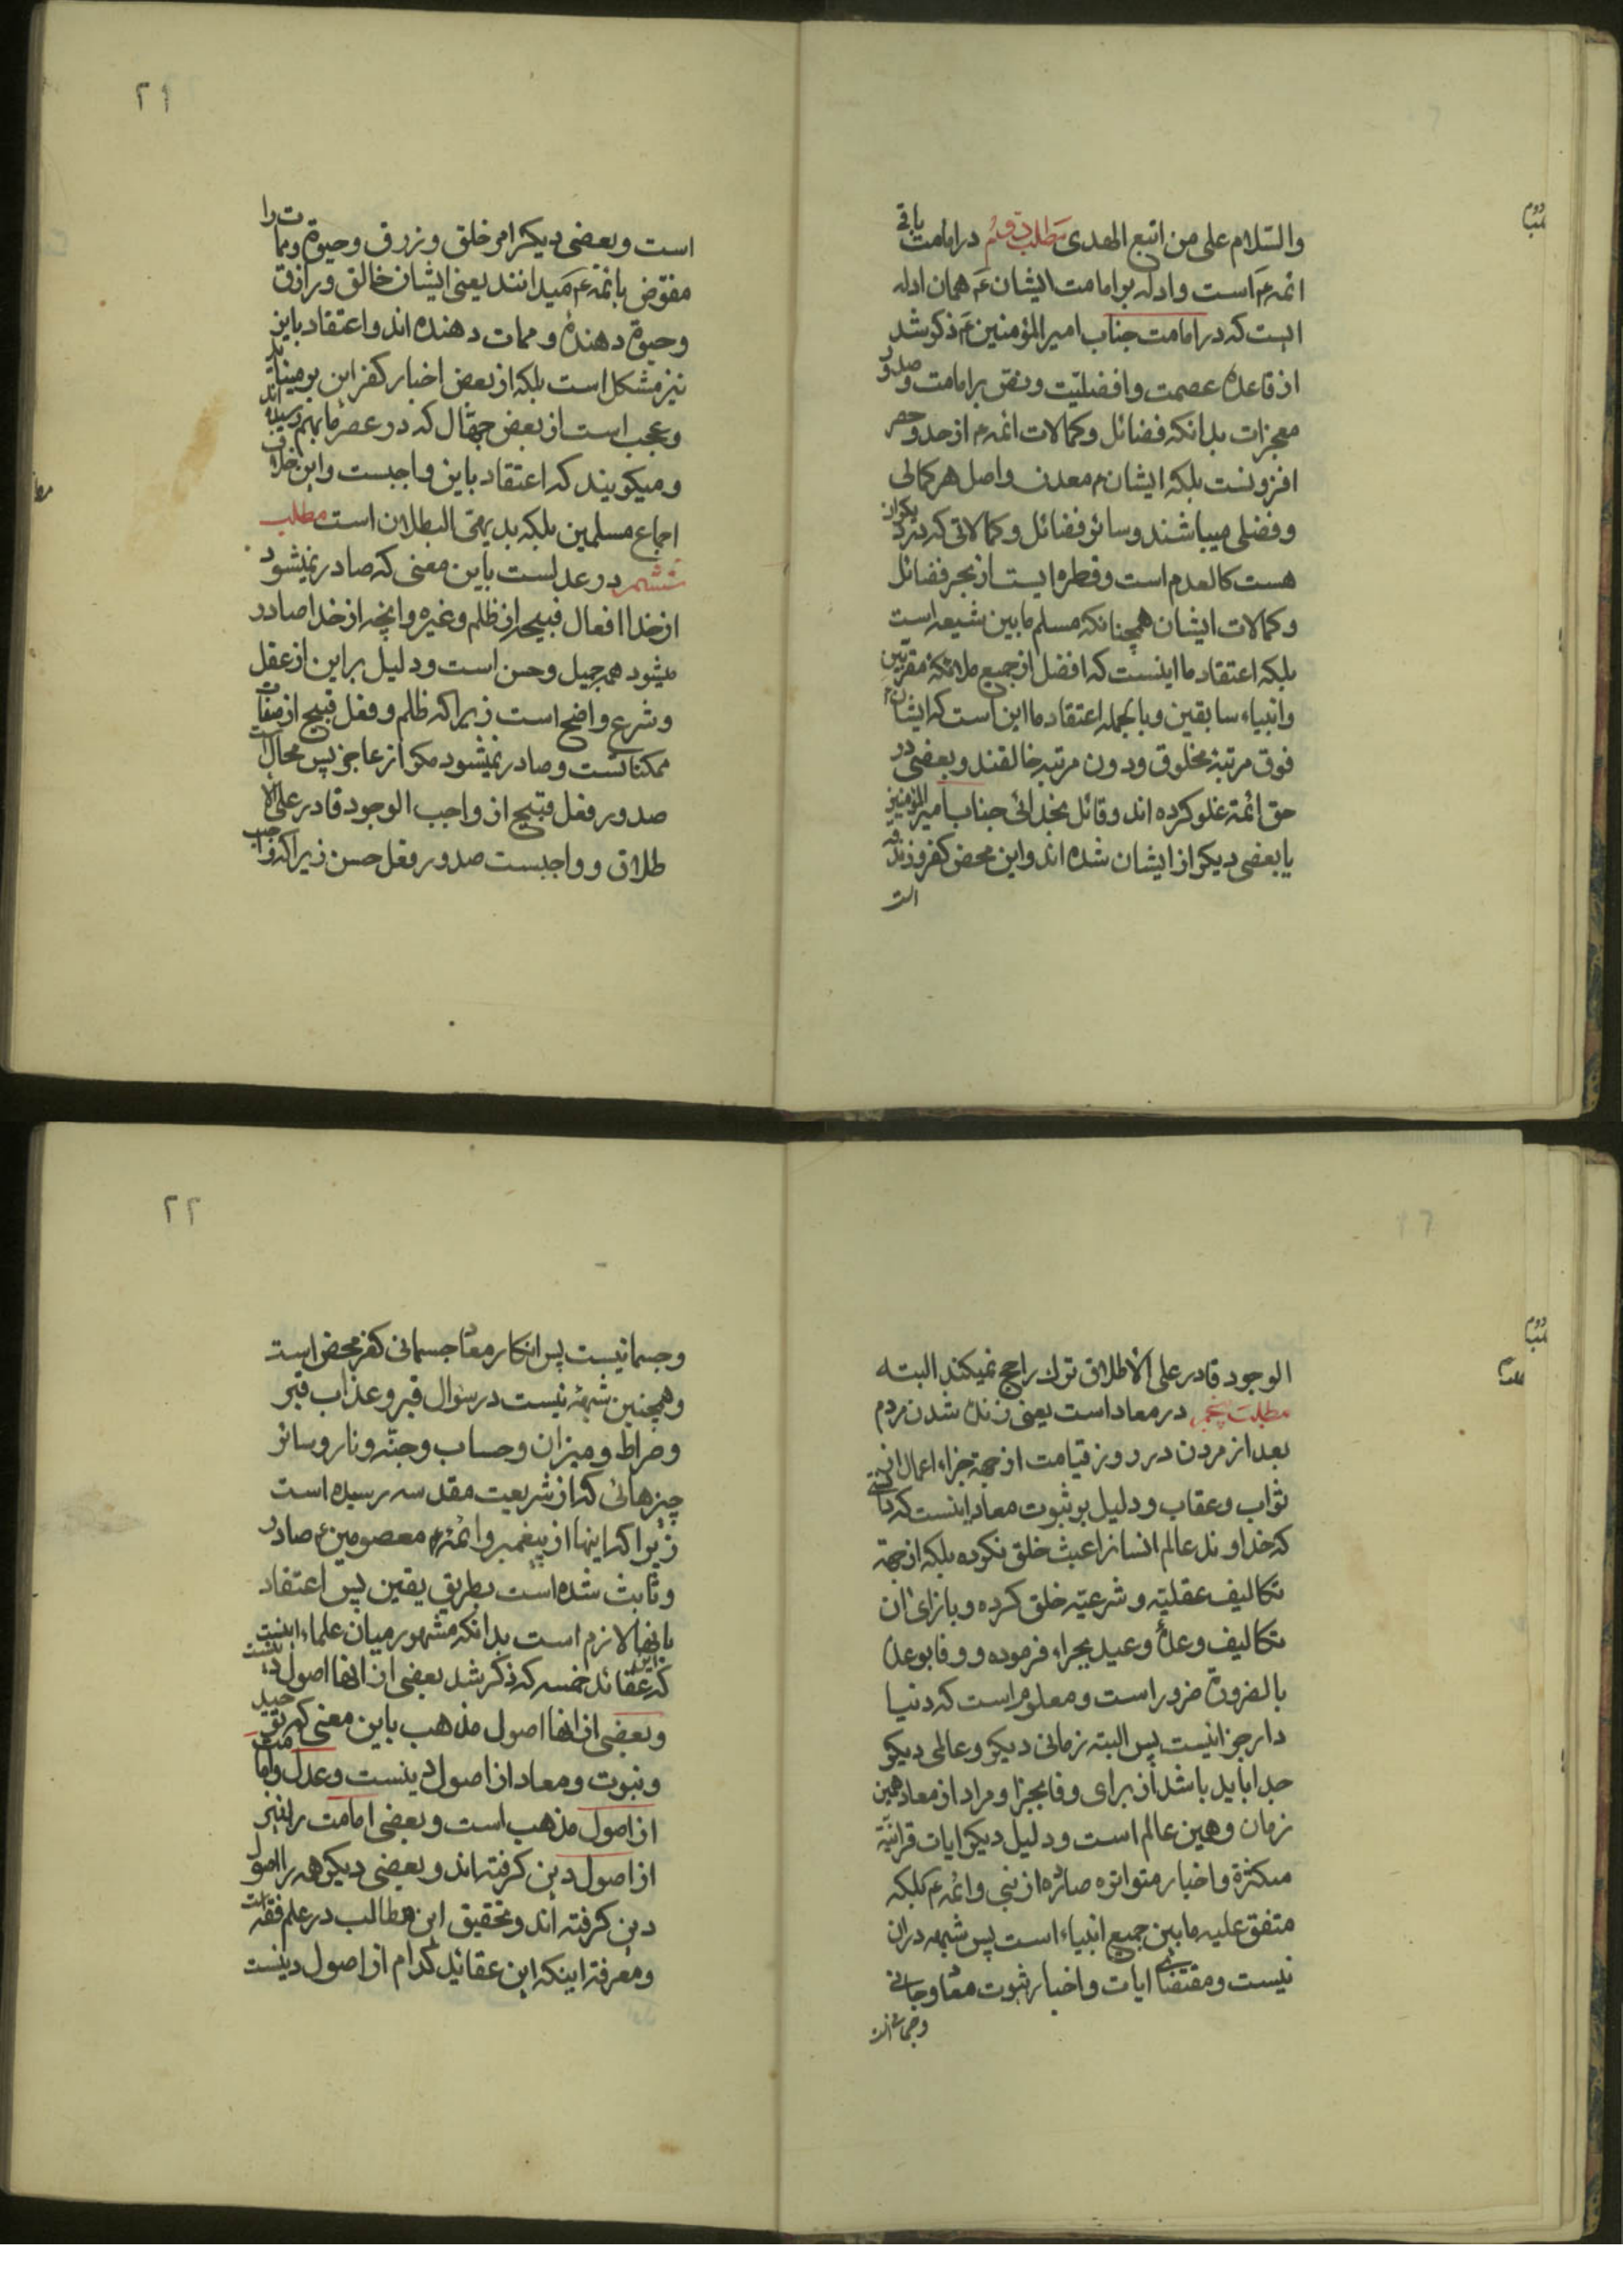 والسّلام علی من اتبع الهدی مطلب دویّم در امامت باقی
ائمه ع است و ادله بر امامت ایشان ع همان ادله
است که در امامت جناب امیرالمؤمنین ع ذکر شد
از قاعدهٔ عصمت و افضلیّت و نص بر امامت و صدور
معجزات بدانکه فضائل و کمالات ائمه ع از حد و حصر
افزونست بلکه ایشان معدن و اصل هر کمالی
و فضلی میباشند و سائر فضائل و کمالاتی که در دیکران
هست کالعدم است و قطره ایست از بحر فضائل
و کمالات ایشان همچنانکه مسلم ما بین شیعه است
بلکه اعتقاد ما اینست که افضل از جمیع ملائکه مقربین
و انبیاء سابقین و بالجمله اعتقاد ما این است که ایشان
فوق مرتبهٔ مخلوق و دون مرتبهٔ خالقند و بعضی در
حق ائمه غلو کرده اند و قائل بخدائی جناب امیرالمؤمنین
یا بعضی دیکر از ایشان شده اند و این محض کفر و زندقه
است
۲۱
است و بعضی دیکر امر خلق و رزق و حیوة و ممات را
مفوّض بائمه ع میدانند یعنی ایشان خالق و رازق
و حیوة دهنده و ممات دهنده اند و اعتقاد باین
نیز مشکل است بلکه از بعض اخبار کفر این بر میناید
و عجب است از بعض جهّال که در عصر ما بهم رسیده اند
و میکویند که اعتقاد باین واجبست و این خلاف
اجماع مسلمین بلکه بدیهیّ البطلان است مطلب
ششم در عدلست باین معنی که صادر نمیشود
از خدا افعال قبیحه از ظلم و غیره و آنچه از خدا صادر
میشود همه جمیل و حسن است و دلیل بر این از عقل
و شرع واضح است زیرا که ظلم و فعل قبیح از صفات
ممکناتست و صادر نمیشود مکر از عاجز پس محال است
صدور فعل قبیح از واجب الوجود قادر علی الا
طلاق و واجبست صدور فعل حسن زیرا که واجب
الوجود قادر علی الاطلاق ترک راجح نمیکند البته
مطلب پنجم در معاد است یعنی زنده شدن مردم
بعد از مردن در روز قیامت از جهة جزاء اعمال از
ثواب و عقاب و دلیل بر ثبوت معاد اینست که دانستی
که خداوند عالم انسانرا عبث خلق نکرده بلکه از جهة
تکالیف عقلیّه و شرعیّه خلق کرده و بازای آن
تکالیف وعده و وعید بجزاء فرموده و وفا بوعده
بالضرورة ضرور است و معلوم است که دنیا
دار جزا نیست پس البته زمانی دیکر و عالمی دیکر
جدا باید باشد از برای وفا بجزا و مراد از معاد همین
زمان و همین عالم است و دلیل دیکر ایات قرانیّه
متکثره و اخبار متواتره صادره از نبی و ائمه ع بلکه
متفق علیه ما بین جمیع انبیاء است پس شبهه در آن
نیست و مقتضای ایات و اخبار ثبوت معاد روحانی
و جسمانی است
۲۲
و جسمانیست پس انکار معاد جسمانی کفر محض است
و همچنین شبههٔ نیست در سؤال قبر و عذاب قبر
و صراط و میزان و حساب و جنّه و نار و سائر
چیزهائی که از شریعت مقدسه رسیده است
زیرا که اینها از پیغمبر و ائمهٔ معصومین ع صادر
و ثابت شده است بطریق یقین پس اعتقاد
بانها لازم است بدانکه مشهور میان علماء اینست
که عقائد خمسه که ذکر شد بعضی از انها اصول دینست
و بعضی از انها اصول مذهب باین معنی که توحید
و نبوت و معاد از اصول دینست و عدل و امامت
از اصول مذهب است و بعضی امامت را نیز
از اصول دین کرفته اند و بعضی دیکر همه را اصول
دین کرفته اند و تحقیق این مطالب در علم فقه است
و معرفة اینکه این عقائد کدام از اصول دینست